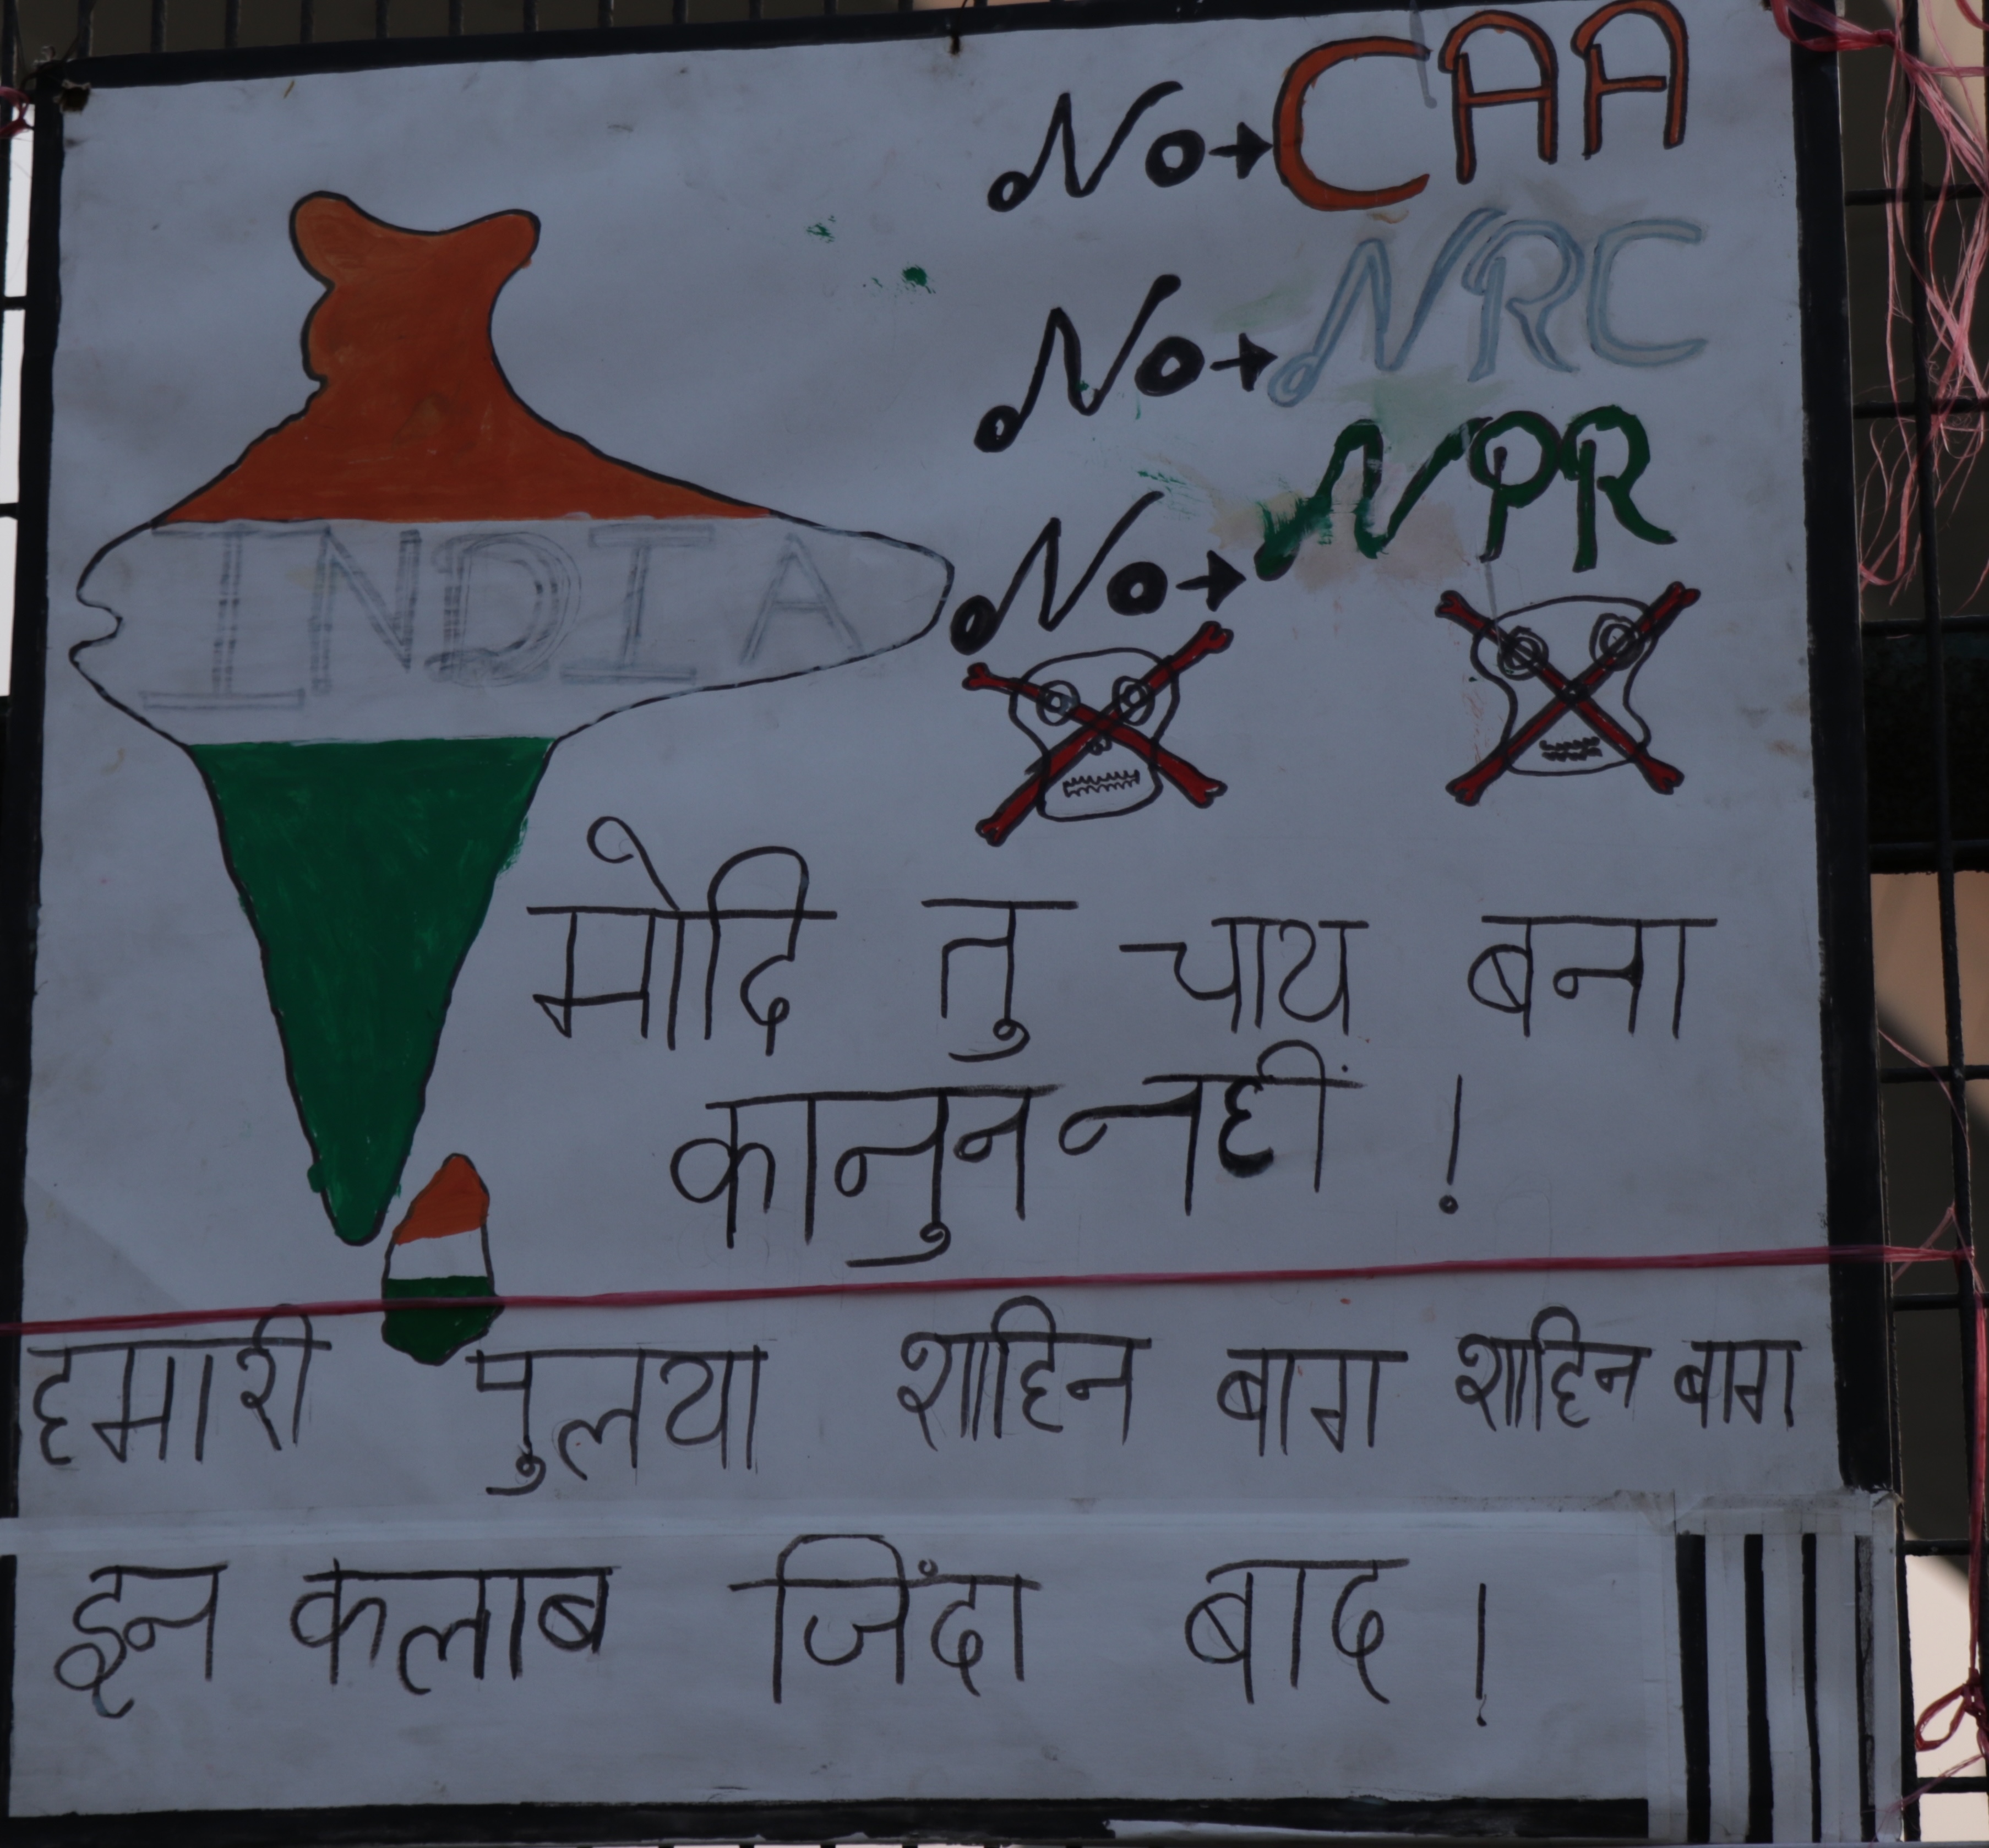 No→CAA
No→NRC
No→NPR
INDIA
मोदि तु चाय बना
कानुन नहीं !
हमारी पुलया शाहिन बाग शाहिन बाग
इन कलाब जिंदा बाद !